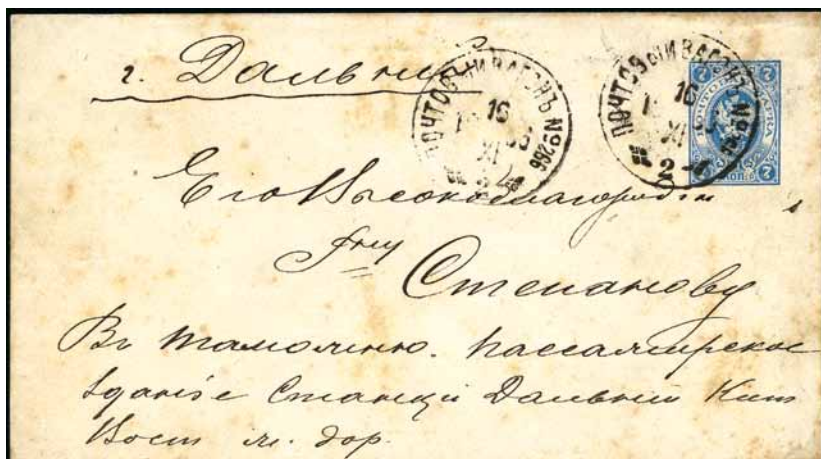 г. Дальній
ПОЧТОВЫЙ ВАГОНЪ № 266
16
XI
2
ПОЧТОВЫЙ ВАГОНЪ №
16
XI
2
7 7
МАРКА
7 7
Его Высокоблагородію
Гну
Степанову
Въ таможню. Пассажирское
Зданіе Станціи Дальній Кит
Вост ж. дор.